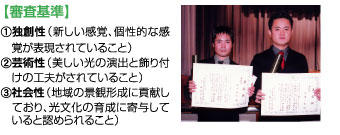 【審査基準】
①独創性（新しい感覚、個性的な感
覚が表現されていること）
②芸術性（美しい光の演出と飾り付
けの工夫がされていること）
③社会性（地域の景観形成に貢献し
ており、光文化の育成に寄与して
いると認められること）